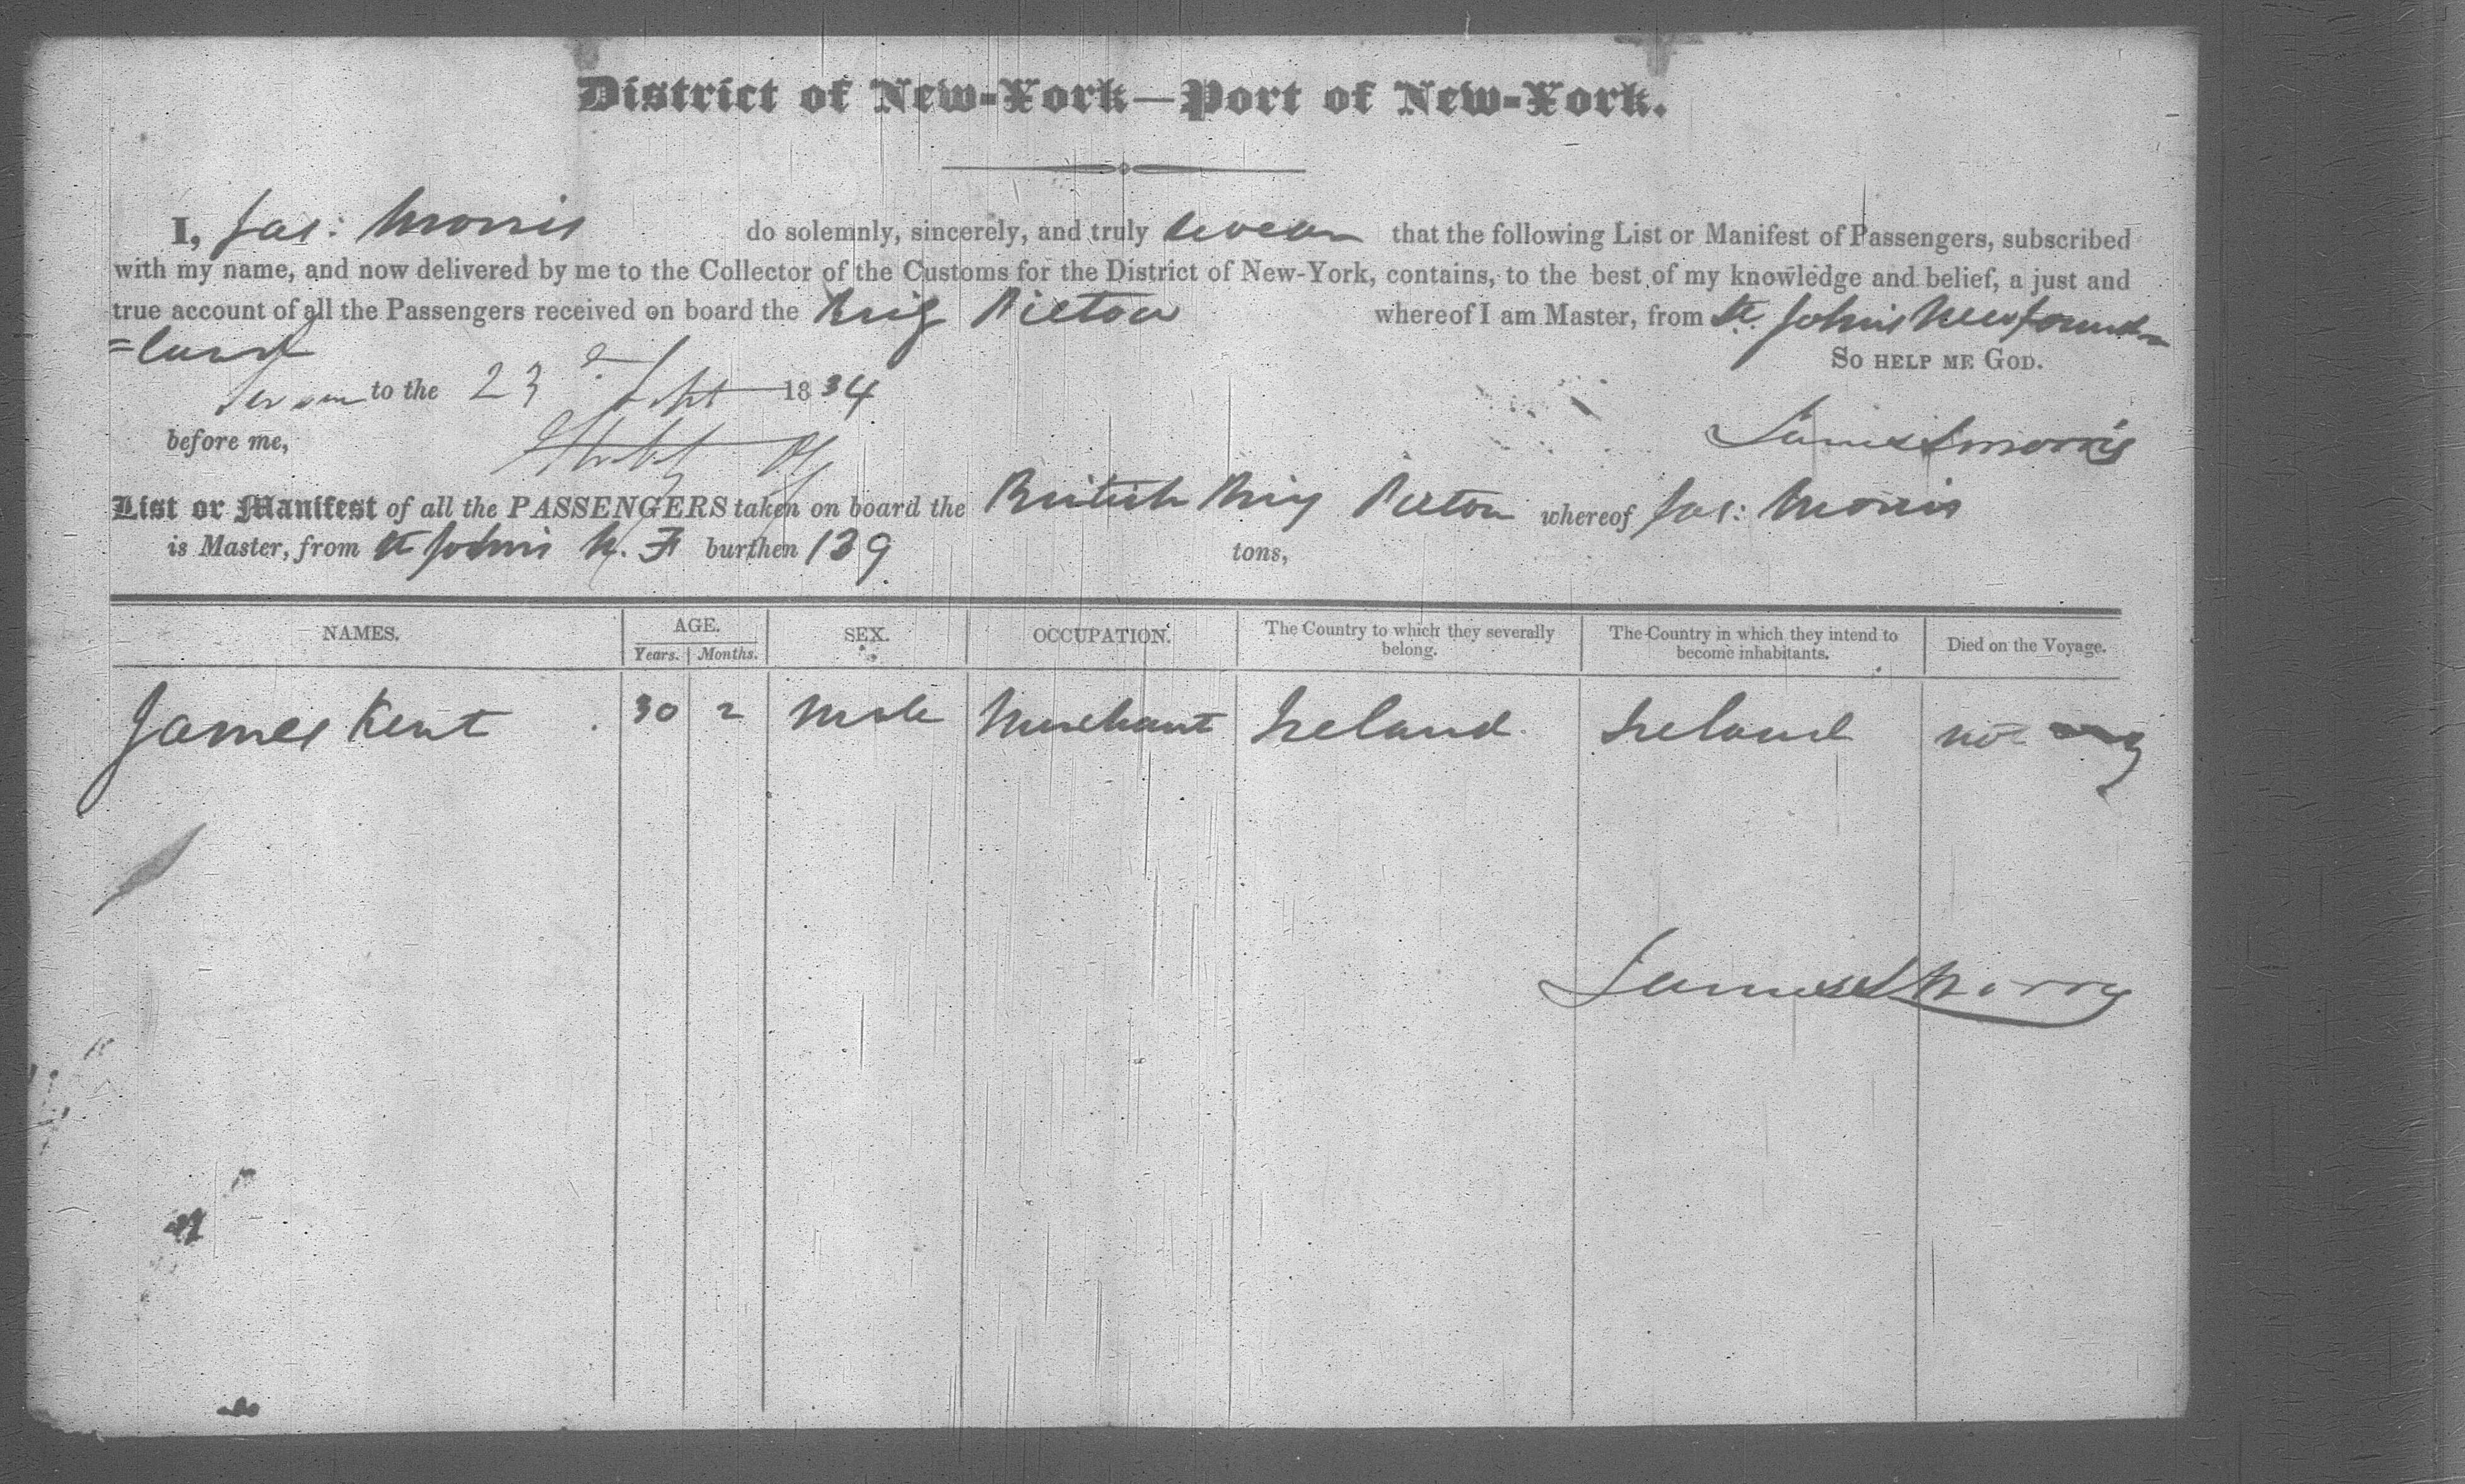 District of New-York—Port of New-York.
I, Jas: Morris do solemnly, sincerely, and truly swear that the following List or Manifest of Passengers, subscribed
with my name, and now delivered by me to the Collector of the Customs for the District of New-York, contains, to the best of my knowledge and belief, a just and
true account of all the Passengers received on board the Brig Picton whereof I am Master, from St. Johns Newfound
=land
So help me God.
Sworn to the 23d Sept 1834
James Morris
before me,
List or Manifest of all the PASSENGERS taken on board the British Brig Picton whereof Jas: Morris
is Master, from St Johns N. F burthen 139 tons,
NAMES. AGE. SEX. OCCUPATION. The Country to which they severally belong. The Country in which they intend to become inhabitants. Died on the Voyage.
Years. Months.
James Kent 30 2 Male Merchant Ireland Ireland not any
James Morris